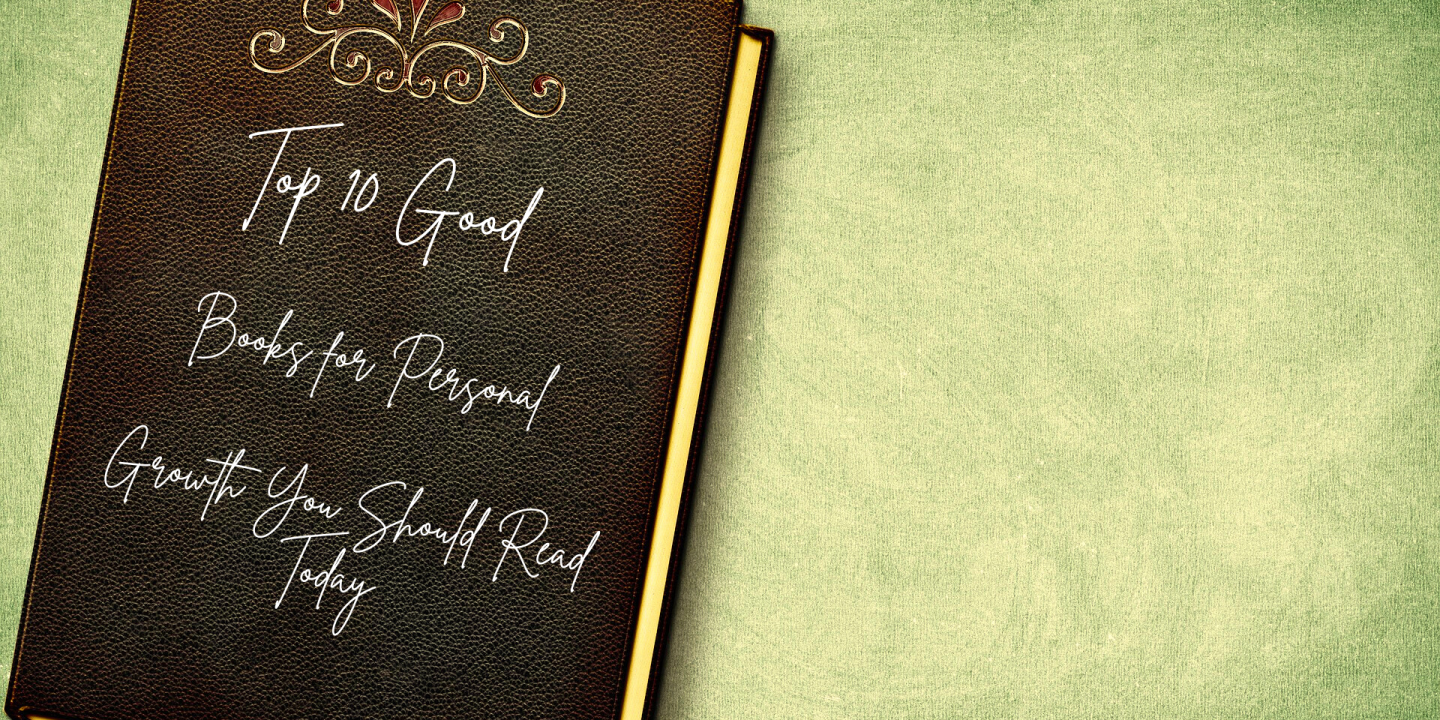 Top 10 Good
Books for Personal
Growth You Should Read
Today